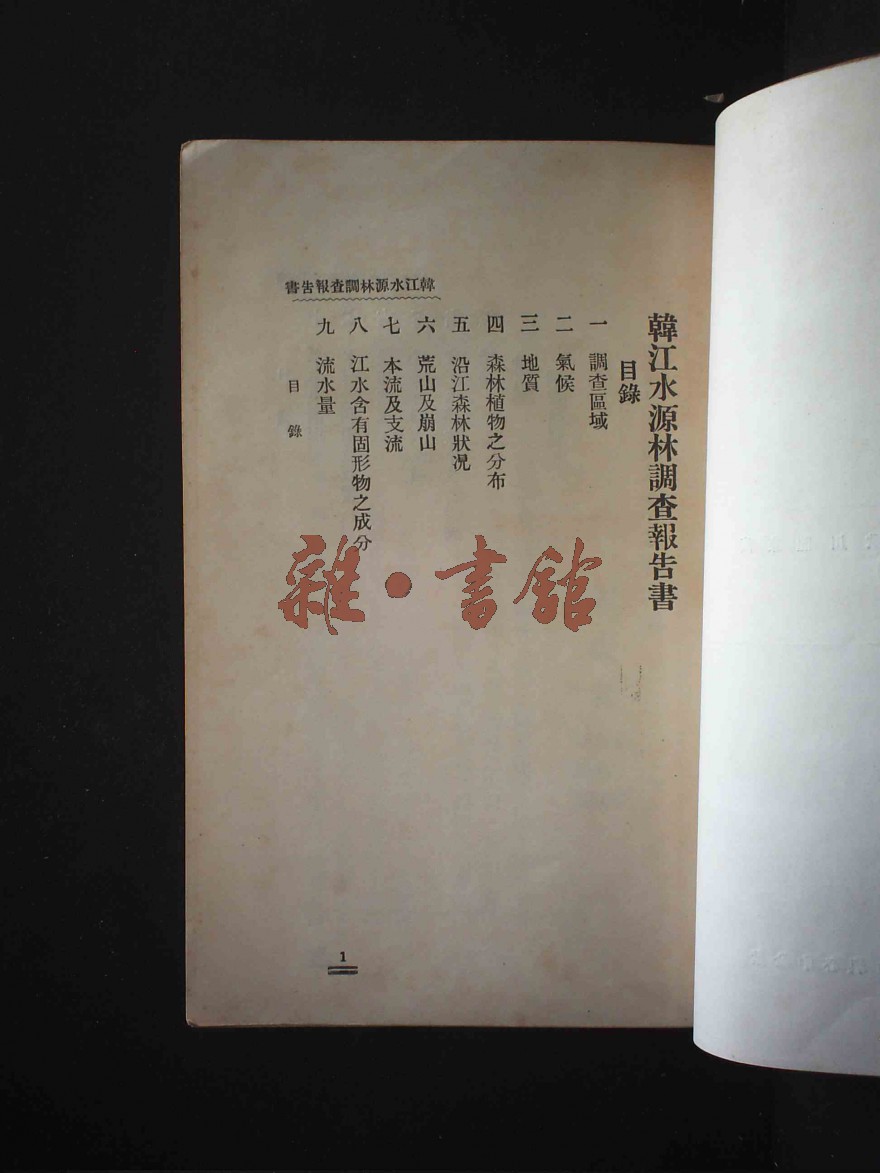 韓江水源林調查報告書
目錄
一 調查區域
二 氣候
三 地質
四 森林植物之分布
五 沿江森林狀况
六 荒山及崩山
七 本流及支流
八 江水含有固形物之成分
九 流水量
書告報查調林源水江韓
目 錄
1
雜·書館